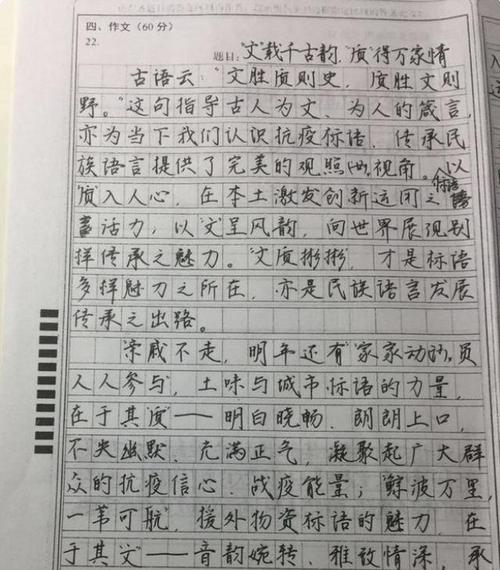 四、作文（60分）
22.
题目："文"载千古韵，"质"得万家情
古语云："文胜质则史，质胜文则
野。"这句指导古人为文、为人的箴言，
亦为当下我们认识抗疫标语、传承民
族语言提供了完美的观照视角。以
"质"入人心，在本土激发创新运用之标语
活力，以"文"呈风韵，向世界展现别
样传承之魅力。"文质彬彬"，才是标语
多样魅力之所在，亦是民族语言发展
传承之出路。
"亲戚不走，明年还有"家家动员
人人参与，土味与城市标语的力量，
在于其"质"——明白晓畅、朗朗上口，
不失幽默、充满正气，凝聚起广大群
众的抗疫信心、战疫能量；鲸波万里，
一苇可航，援外物资标语的魅力，在
于其"文"——音韵婉转、雅致情深，承